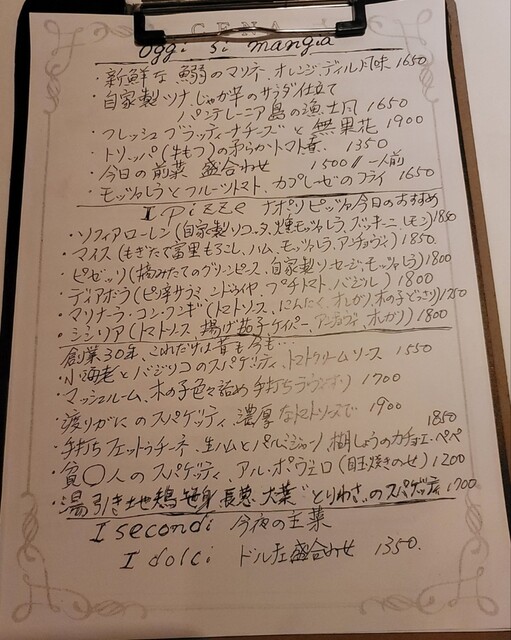 CENA
Oggi si mangia
・新鮮な鰯のマリネ、オレンジ、ディル風味 1650
・自家製ツナ、じゃが芋のサラダ仕立て
パンテレーニア島の漁士風 1650
・フレッシュブラッティーナチーズと無果花 1900
・トリッパ(牛もつ)の柔らかトマト煮 1350
・今日の前菜 盛合わせ 1500//一人前
・モッツァレラとフルーツトマト、カプレーゼのフライ 1650
I Pizze ナポリピッツァ今日のおすすめ
・ソフィアローレン(自家製リコッタ、燻モッツァレラ、ズッキーニ、レモン)1850
・マイス(もぎたて富里もろこし、ハム、モッツァレラ、アンチョヴィ)1850.
・ピゼッリ(摘みたてのグリーンピース、自家製ソーセージ、モッツァレラ)1800
・ディアボラ(ピリ辛サラミ、ンドゥイヤ、プチトマト、バジル) 1800
・マリナーラ・コン・フンギ(トマトソース、にんにく、オレガノ、木の子どっさり)1750
・シシリア(トマトソース、揚げ茄子、ケイパー、アンチョヴィ、オレガノ) 1800
創業30年、これだけは昔も今も…
・小海老とバジリコのスパゲッティ、トマトクリームソース 1550
・マッシュルーム、木の子色々詰め手打ちラヴィオリ 1700
・渡りがにのスパゲッティ、濃厚なトマトソースで 1900
・手打ちフェットゥチーネ、生ハムとパルミジャーノ、胡しょうのカチョエ・ペペ 1850
・貧〇人のスパゲッティ、アル・ポヴェロ(目玉焼きのせ) 1200
・湯引き地鶏笹身、長葱、大葉"とりわさ"のスパゲッティ 1700
I secondi 今夜の主菜
I dolci ドルチェ盛合わせ 1350.